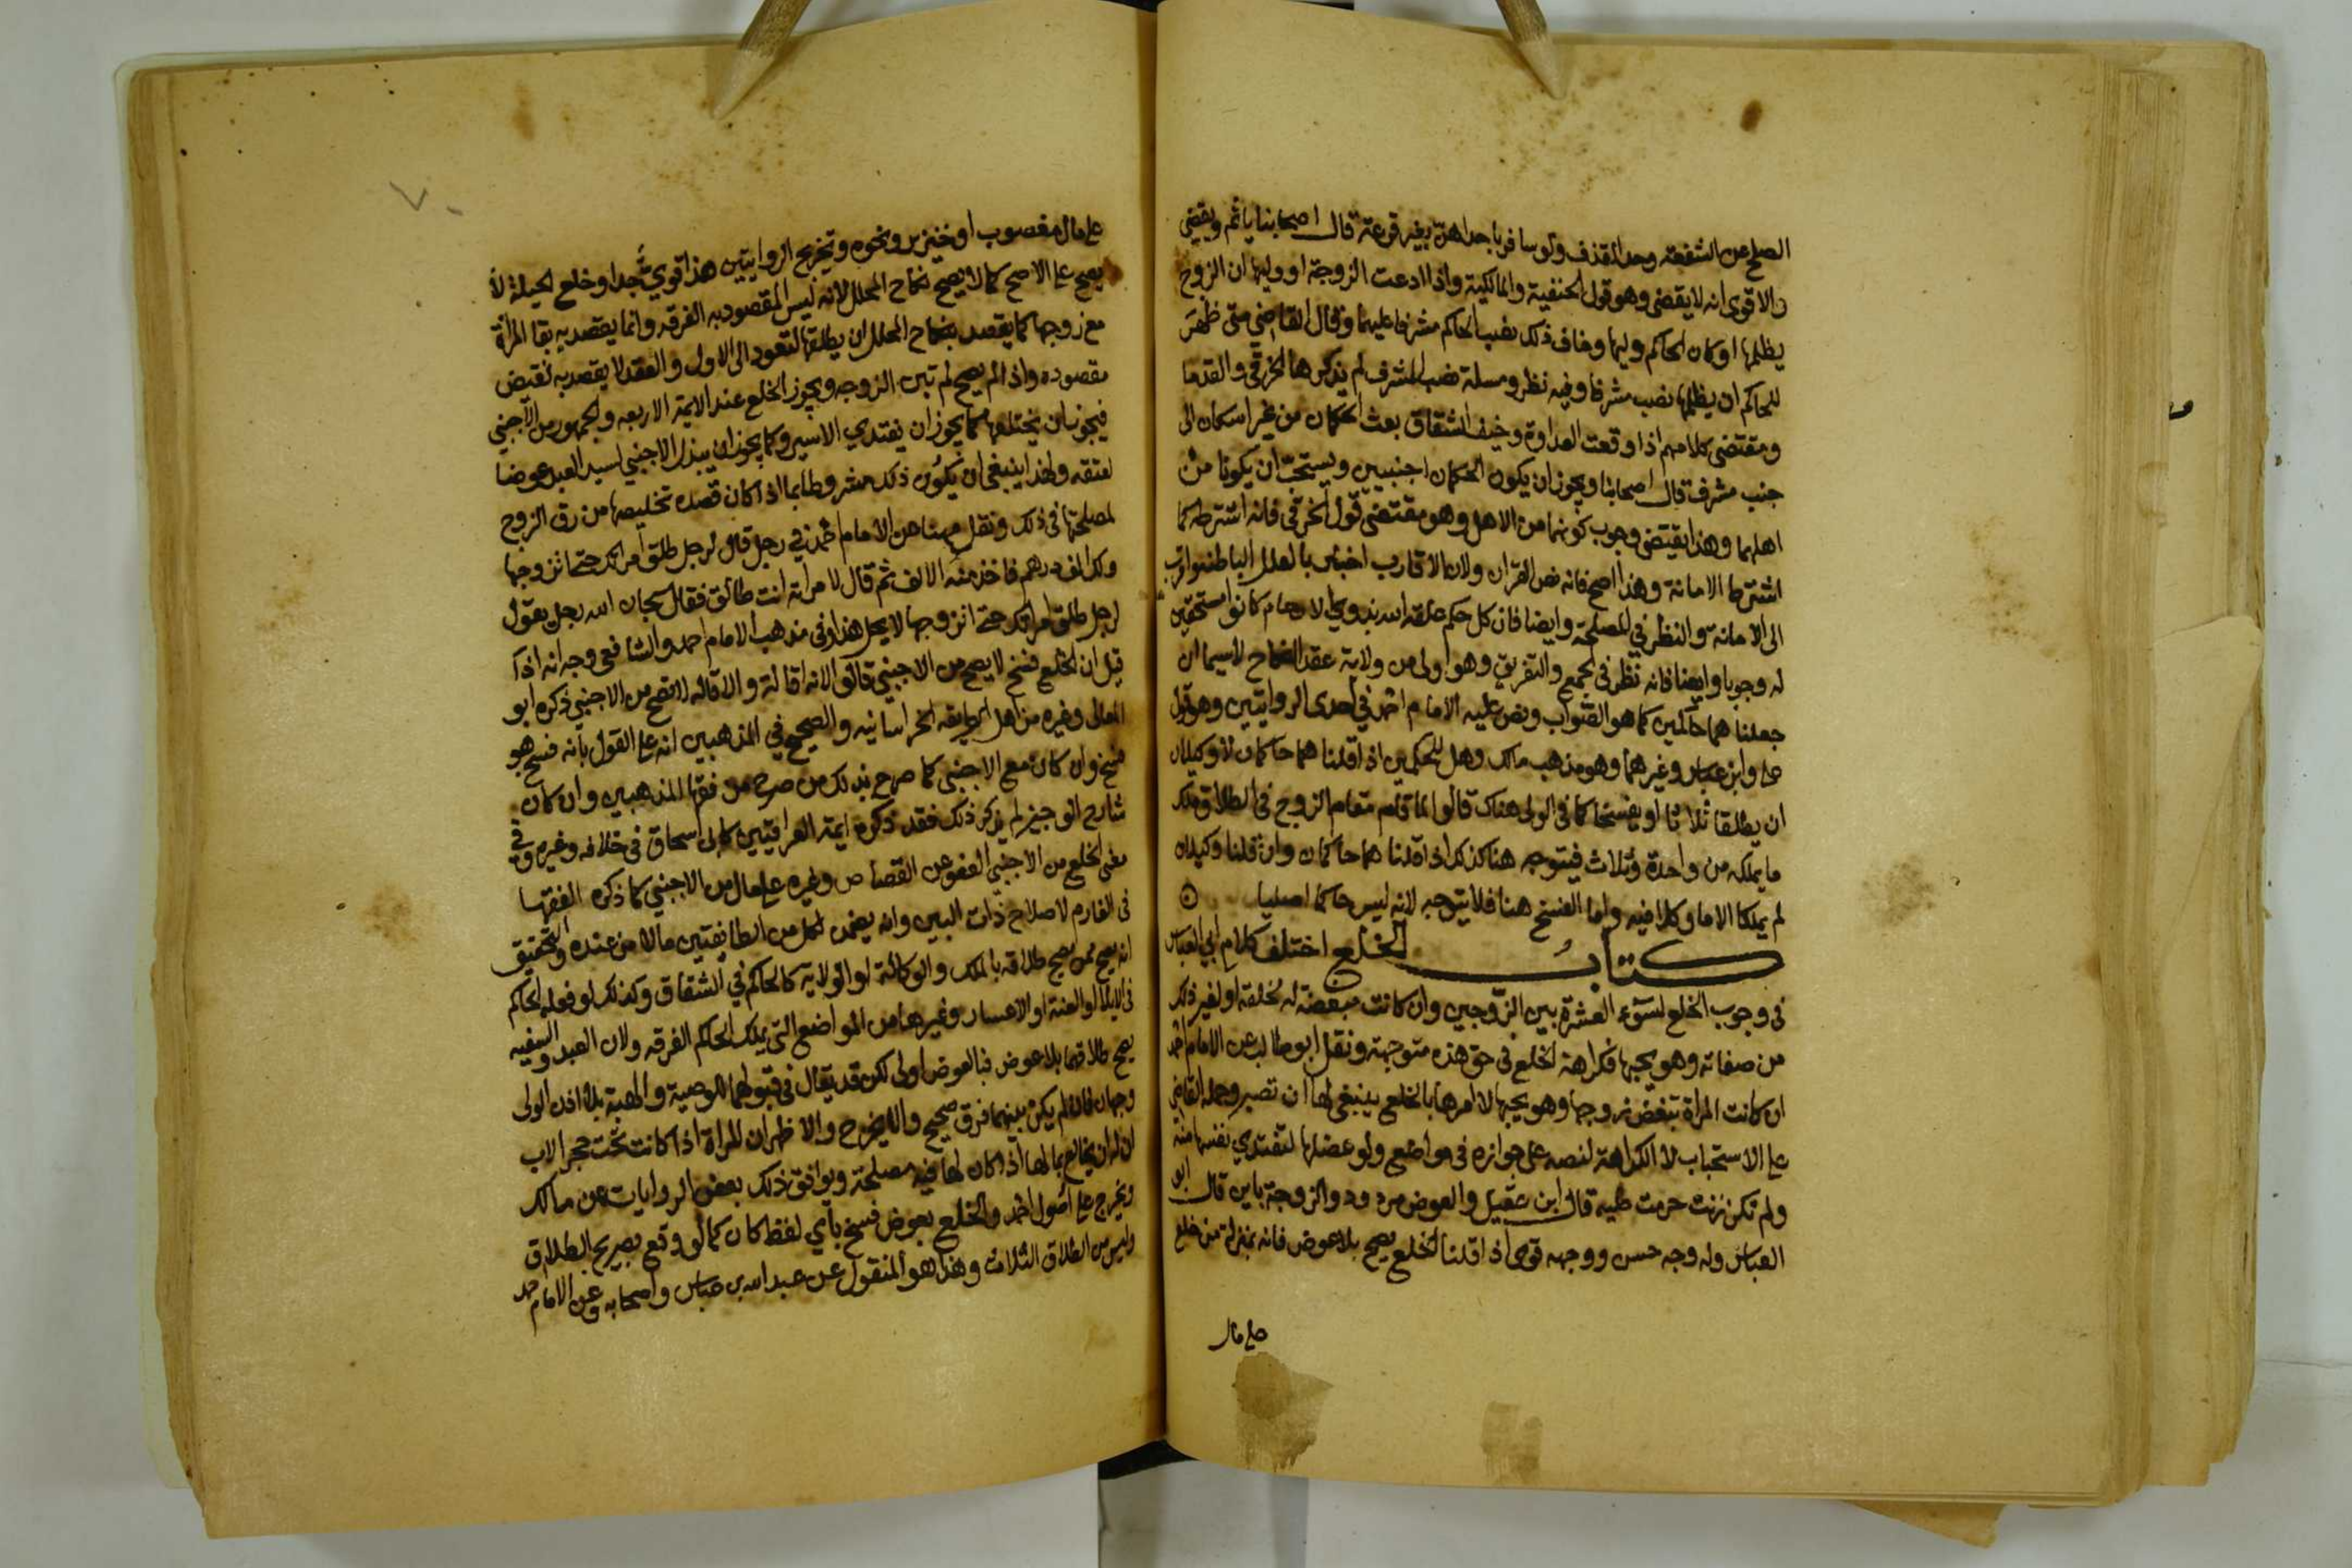 الصلح عن الشفعة وحد القذف ولو سافر باحداهن بغير قرعة قال اصحابنا ياثم ويقضي
والاقوى انه لا يقضي وهو قول الحنفية والمالكية واذا ادعت الزوجة او وليها ان الزوج
يظلمها وكان الحاكم وليها وخاف ذلك نصب الحاكم مشرفا عليهما وقال القاضي متى ظهر
للحاكم ان يظلمها نصب مشرفا وفيه نظر ومسلة نصب المشرف لم يذكرها الخرقي والقدما
ومقتضى كلامهم اذا وقعت العداوة وخيف الشقاق بعث الحكمان من غير اسكان الى
جنب مشرف قال اصحابنا ويجوز ان يكون الحكمان اجنبيين ويستحب ان يكونا من
اهلهما وهذا يقتضي وجوب كونهما من الاهل وهو مقتضى قول الخرقي فانه اشترطه كما
اشترط الامانة وهذا اصح فانه نص القران ولان الاقارب اخبر بالعلل الباطنة واقرب
الى الامانة والنظر في المصلحة وايضا فان كل حكم علقه الله بذوي الارحام كانوا مستحقين
له وجوبا وايضا فانه نظر في الجمع والتفريق وهو اولى من ولاية عقد النكاح لاسيما ان
جعلناهما حاكمين كما هو الصواب ونص عليه الامام احمد في احدى الروايتين وهو قول
على وابن عباس وغيرهما وهو مذهب مالك وهل للحكمين اذا قلنا هما حاكمان لا وكيلان
ان يطلقا ثلاثا او يفسخا كما في الولى هناك قالوا لما قام مقام الزوج في الطلاق ملك
ما يملكه من واحدة وثلاث فيتوجه هنا كذلك اذا قلنا هما حاكمان وان قلنا وكيلان
لم يملكا الا ما وكلا فيه واما الفسخ هنا فلا يتوجه لانه ليس حاكما اصليا
كتاب الخلع اختلف كلام ابي العباس
في وجوب الخلع لسوء العشرة بين الزوجين وان كانت مبغضة له لخلقه او لغير ذلك
من صفاته وهو يحبها فكراهة الخلع في حق هذه متوجهة ونقل ابو طالب عن الامام احمد
ان كانت المراة تبغض زوجها وهو يحبها لا امرها بالخلع ينبغي لها ان تصبر وحمله القاضي
على الاستحباب لا الكراهة لنصه على جوازه في مواضع ولو عضلها لتفتدي نفسها منه
ولم تكن زنت حرمت عليه قال ابن عقيل والعوض مردود والزوجة باين قال ابو
العباس وله وجه حسن ووجهه قوى اذا قلنا الخلع يصح بلا عوض فانه بمنزلة من خلع
على مال
على مال مغصوب او خنزير ونحوه وتخريج الروايتين هذا قوي جدا وخلع الحيلة لا
يصح على الاصح كما لا يصح نكاح المحلل لانه ليس المقصود به الفرقه وانما يقصد به بقا المراة
مع زوجها كما يقصد بنكاح المحلل ان يطلقها لتعود الى الاول والعقد لا يقصد به نقيض
مقصوده واذا لم يصح لم تبن الزوجه ويجوز الخلع عند الايمة الاربعه والجمهور من الاجنبي
فيجوز ان يختلعها كما يجوز ان يفتدي الاسير وكما يجوز ان يبذل الاجنبي لسيد العبد عوضا
لعتقه ولهذا ينبغي ان يكون ذلك مشروطا بما اذا كان قصده تخليصها من رق الزوج
لمصلحتها في ذلك ونقل مهنا عن الامام احمد في رجل قال لرجل طلق امراتك حتى اتزوجها
ولك الف درهم فاخذ منه الالف ثم قال لامراته انت طالق فقال سبحان الله رجل يقول
لرجل طلق امراتك حتى اتزوجها لا يحل هذا وفي مذهب الامام احمد والشافعي وجه انه اذا
قيل ان الخلع فسخ لا يصح من الاجنبي قالوا لانه اقالة والاقاله لا تصح من الاجنبي ذكره ابو
المعالى وغيره من اهل الطايفه الخراسانيه والصحيح في المذهبين انه على القول بانه فسخ هو
فسخ وان كان مع الاجنبي كما صرح بذلك من صرح من فقها المذهبين وان كان
شارح الوجيز لم يذكر ذلك فقد ذكره ايمة العراقيين كابي اسحاق في خلافه وغيره وفي
معنى الخلع من الاجنبي العفو عن القصاص وغيره على مال من الاجنبي كما ذكره الفقها
في الغارم لاصلاح ذات البين وانه يضمن لكل من الطايفتين مالا من عنده والتحقيق
انه يصح ممن يصح طلاقه بالملك والوكالة او الولاية كالحاكم في الشقاق وكذلك لو فعله الحاكم
في الايلا او العنة او الاعسار وغيرها من المواضع التي يملك الحاكم الفرقه ولان العبد والسفيه
يصح طلاقهما بلا عوض فبالعوض اولى لكن قد يقال في قبولهما للوصية والهبة بلا اذن الولى
وجهان فان لم يكن بينهما فرق صحيح والا يخرج والاظهر ان المراة اذا كانت تحت حجر الاب
ان له ان يخالع بمالها اذا كان لها فيه مصلحة ويوافق ذلك بعض الروايات عن مالك
وتخرج على اصول احمد والخلع بعوض فسخ باي لفظ كان كما لو وقع بصريح الطلاق
وليس من الطلاق الثلاث وهذا هو المنقول عن عبد الله بن عباس واصحابه وعن الامام احمد